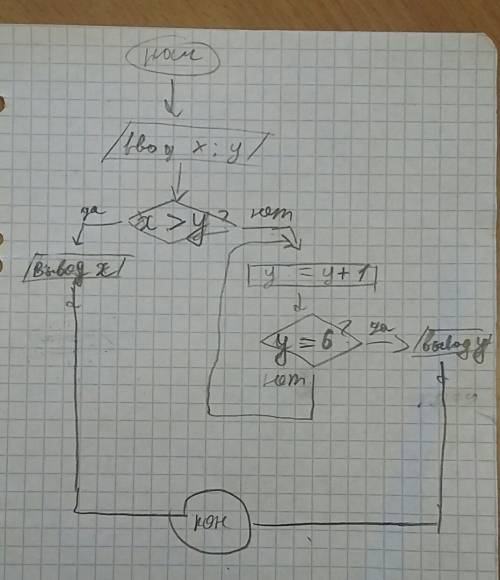 нач
ввод x; y
да
x > y ?
нет
вывод x
y = y + 1
y = 6 ?
да
вывод y
нет
кон